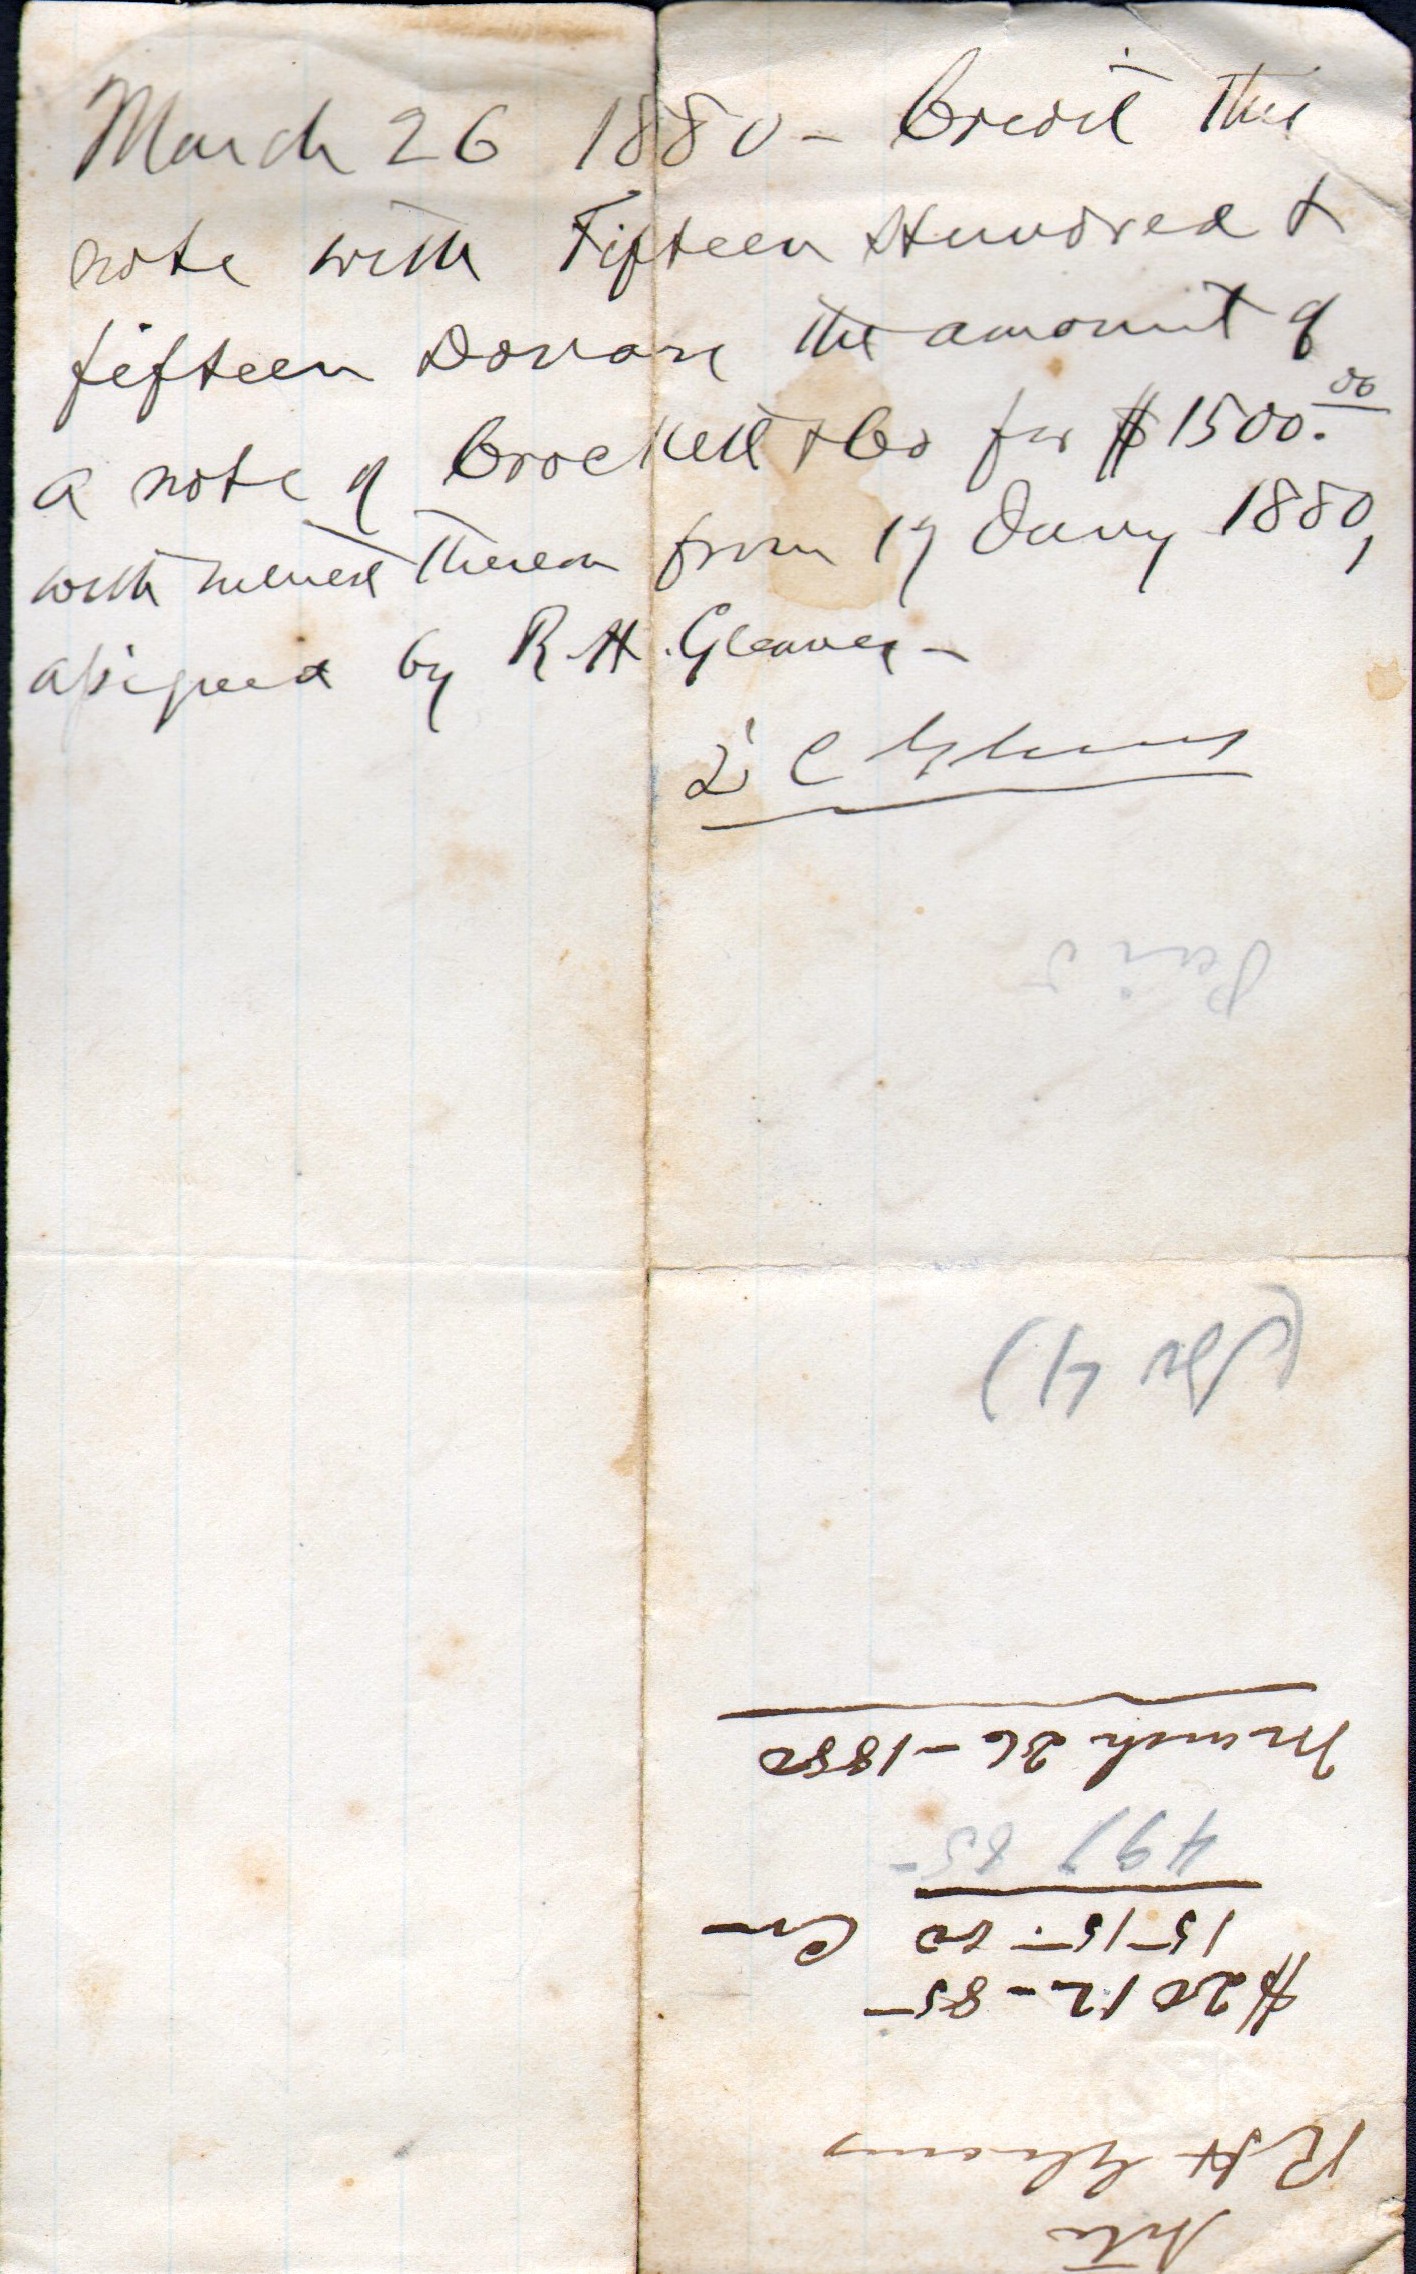 March 26 1880 - Credit this
note with Fifteen Hundred &
fifteen Dollars the amount of
a note of Crockett & Co for $1500.00
with interest thereon from 19 Jany 1880,
assigned by R. H. Gleaves -
C Gleaves
Paid
(No 4)
Note
R H Gleaves
$2012-85
1515.00 Cr
497 85
March 26-1880